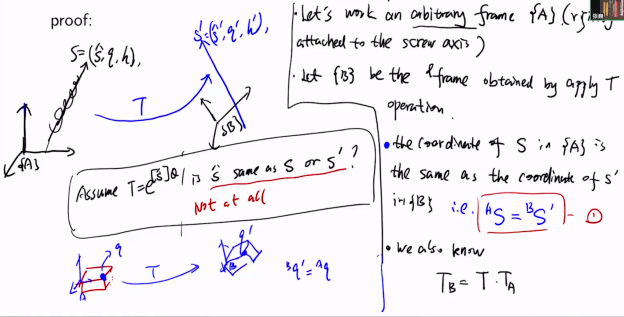 proof:
S=(ŝ,q,h)
S'=(ŝ',q',h'),
T
{A}
{B}
Assume T=e^[Ŝ]θ, is Ŝ same as S or S'?
Not at all
q
T
q'
A
B
ᴮq'=ᴬq
• Let's work an arbitrary frame {A} (
attached to the screw axis)
• Let {B} be the frame obtained by apply T
operation.
• the coordinate of S in {A} is
the same as the coordinate of S'
in {B} i.e. ᴬS = ᴮS' - ①
• We also know
T_B = T · T_A